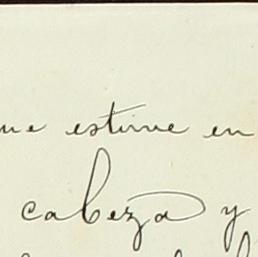 ue estime en
cabeza y